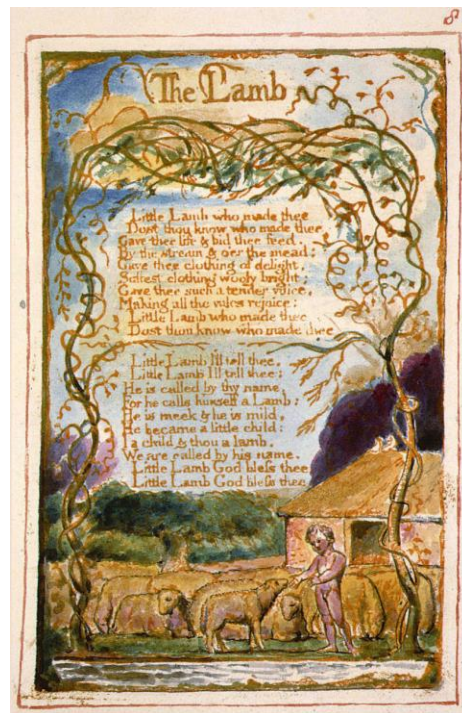 8
The Lamb
Little Lamb who made thee
Dost thou know who made thee
Gave thee life & bid thee feed.
By the stream & o'er the mead;
Gave thee clothing of delight,
Softest clothing wooly bright;
Gave thee such a tender voice,
Making all the vales rejoice:
Little Lamb who made thee
Dost thou know who made thee
Little Lamb I'll tell thee,
Little Lamb I'll tell thee;
He is called by thy name,
For he calls himself a Lamb:
He is meek & he is mild,
He became a little child:
I a child & thou a lamb,
We are called by his name.
Little Lamb God bleſs thee.
Little Lamb God bleſs thee.